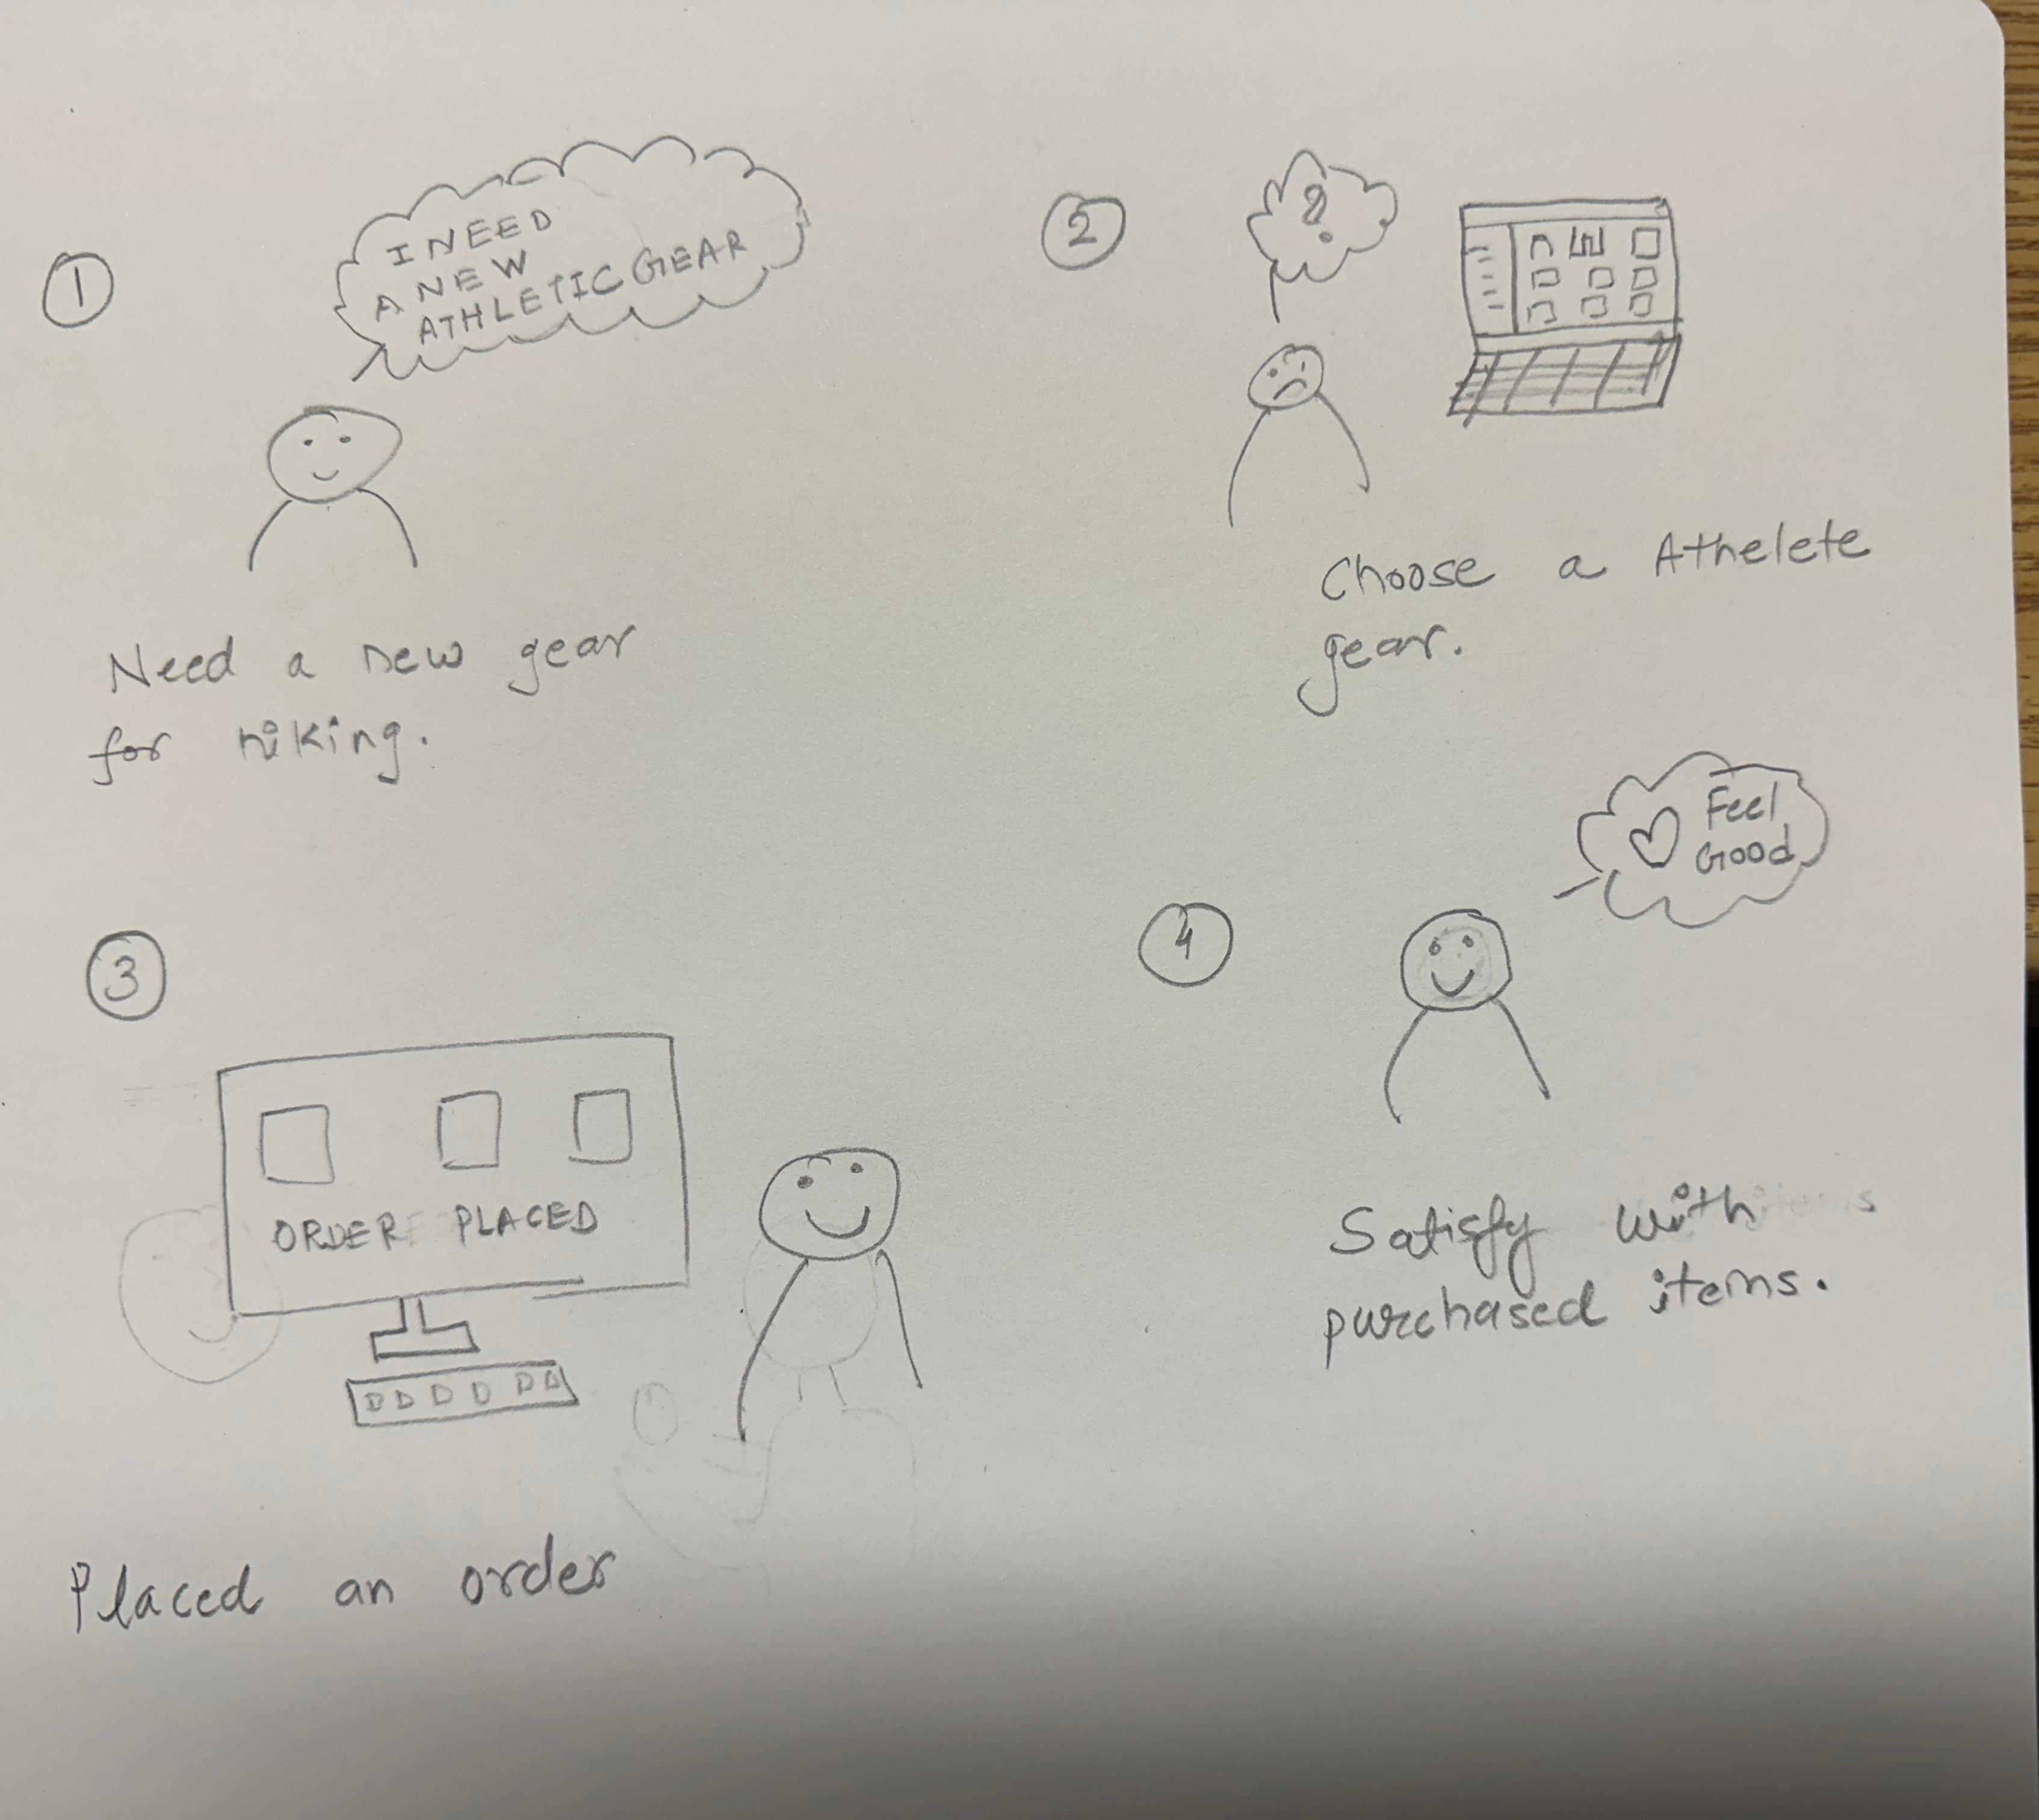 1
I NEED
A NEW
ATHLETIC GEAR
Need a new gear
for hiking.
2
?
Choose a Athelete
gear.
3
ORDER PLACED
Placed an order
4
Feel
Good
Satisfy with
purchased items.